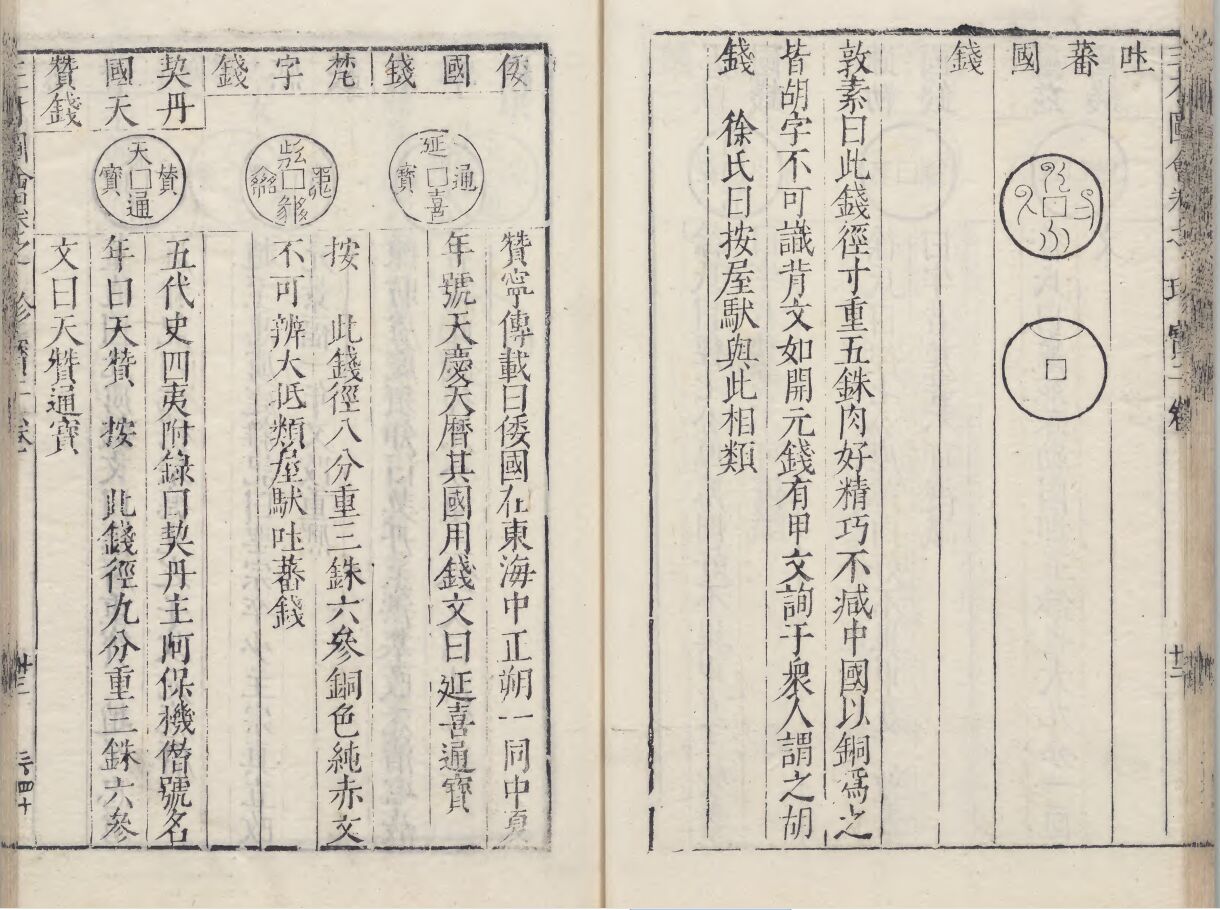 三才圖會
珍寶二卷
廿二
吐蕃國錢
敦素曰此錢徑寸重五銖肉好精巧不减中國以銅爲之
皆胡字不可識背文如開元錢有甲文詢于衆人謂之胡
錢 徐氏曰按屋馱與此相類
倭國錢
延喜通寶
贊寧傳載曰倭國在東海中正朔一同中夏
年號天慶天曆其國用錢文曰延喜通寶
梵字錢
按 此錢徑八分重三銖六參銅色純赤文
不可辨大抵類屋馱吐蕃錢
契丹
國天
贊錢
天贊通寶
五代史四夷附錄曰契丹主阿保機僭號名
年曰天贊按 此錢徑九分重三銖六參
文曰天贊通寶
廿三